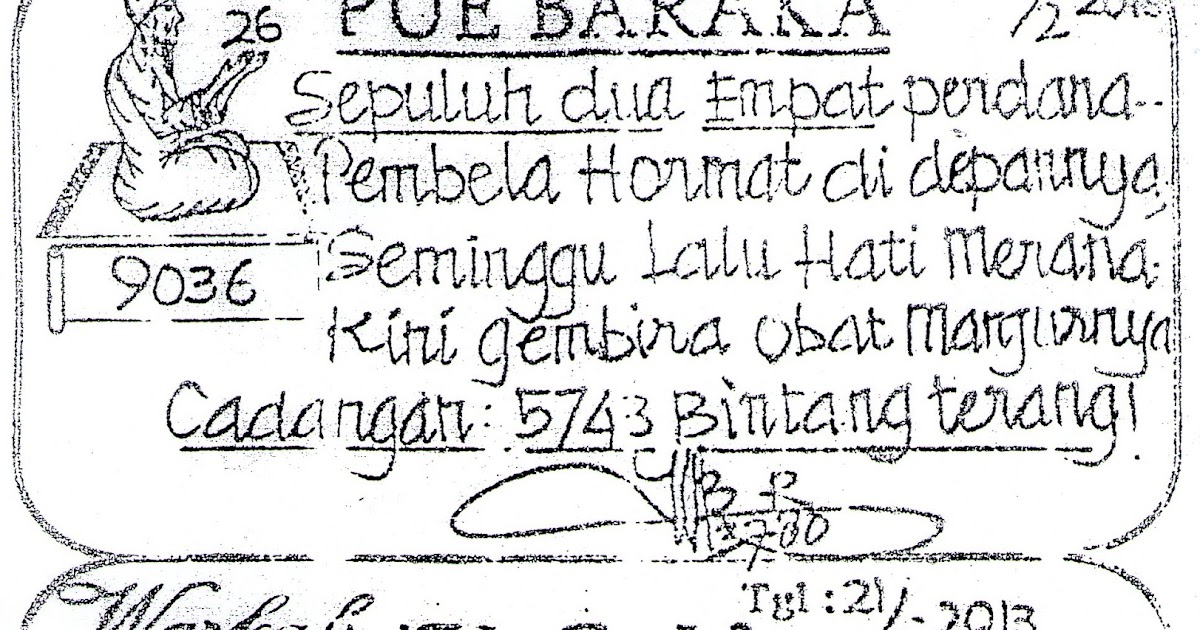 26 POE BARAKA /2 2013
Sepuluh dua Empat perdana--
Pembela Hormat di depannya
9036 Seminggu Lalu Hati Merana
Kini gembira Obat Manjurnya
Cadangan: 5743 Bintang terang!
Tgl: 21/-2013